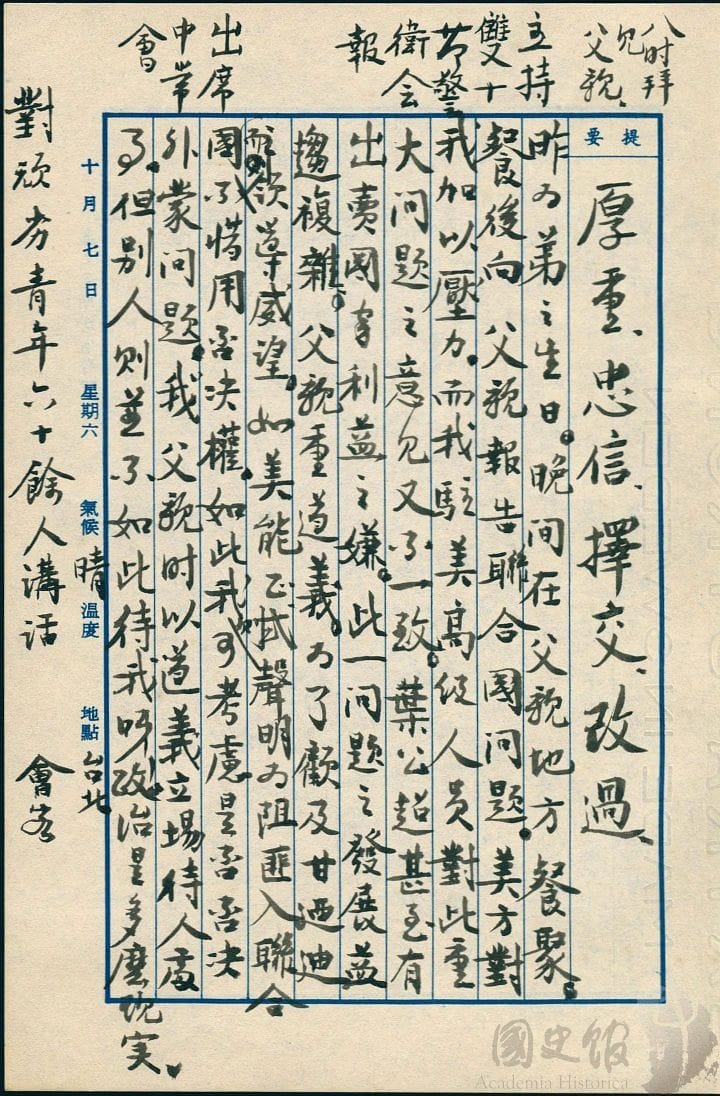 八时拜
见
父親、
主持
雙十
节警
衛会
報
出席
中常
會
提要
厚重、忠信、擇交、改過、
昨为弟之生日。晚间在父親地方餐聚。
餐後向 父親報告聯合國问題。美方對
我加以壓力。而我駐美高级人員對此重
大问題之意见又不一致。葉公超甚至有
出賣國家利益之嫌。此一问題之發展益
趨複雜。父親重道義。为了顧及甘迺迪
之領導威望。如美能正式聲明为阻匪入聯合
國不惜用否决權。如此我可考慮是否否决
外蒙问題。我父親时以道義立場待人處
事。但别人则並不如此待我呀。政治是多麼现实、
十月七日 星期六 氣候 晴 温度 地點 台北
對頑劣青年六十餘人講话 會客
國史館
Academia Historica